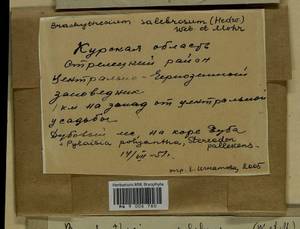 Brachythecium salebrosum (Hedw.)
Web et Mohr
Курская область
Стрелецкий район
Центрально-Черноземный
заповедник
1 км на запад от центральной
усадьбы
Дубовый лес, на коре дуба
c Pylaisia polyantha, Stereodon
pallescens.
14/VIII-51г.
опр. Е. Игнатова, 2005
Herbarium MW, Bryophyta
MW 9 006 760